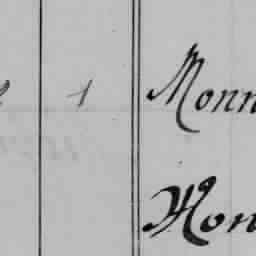 1 Monn
Mon